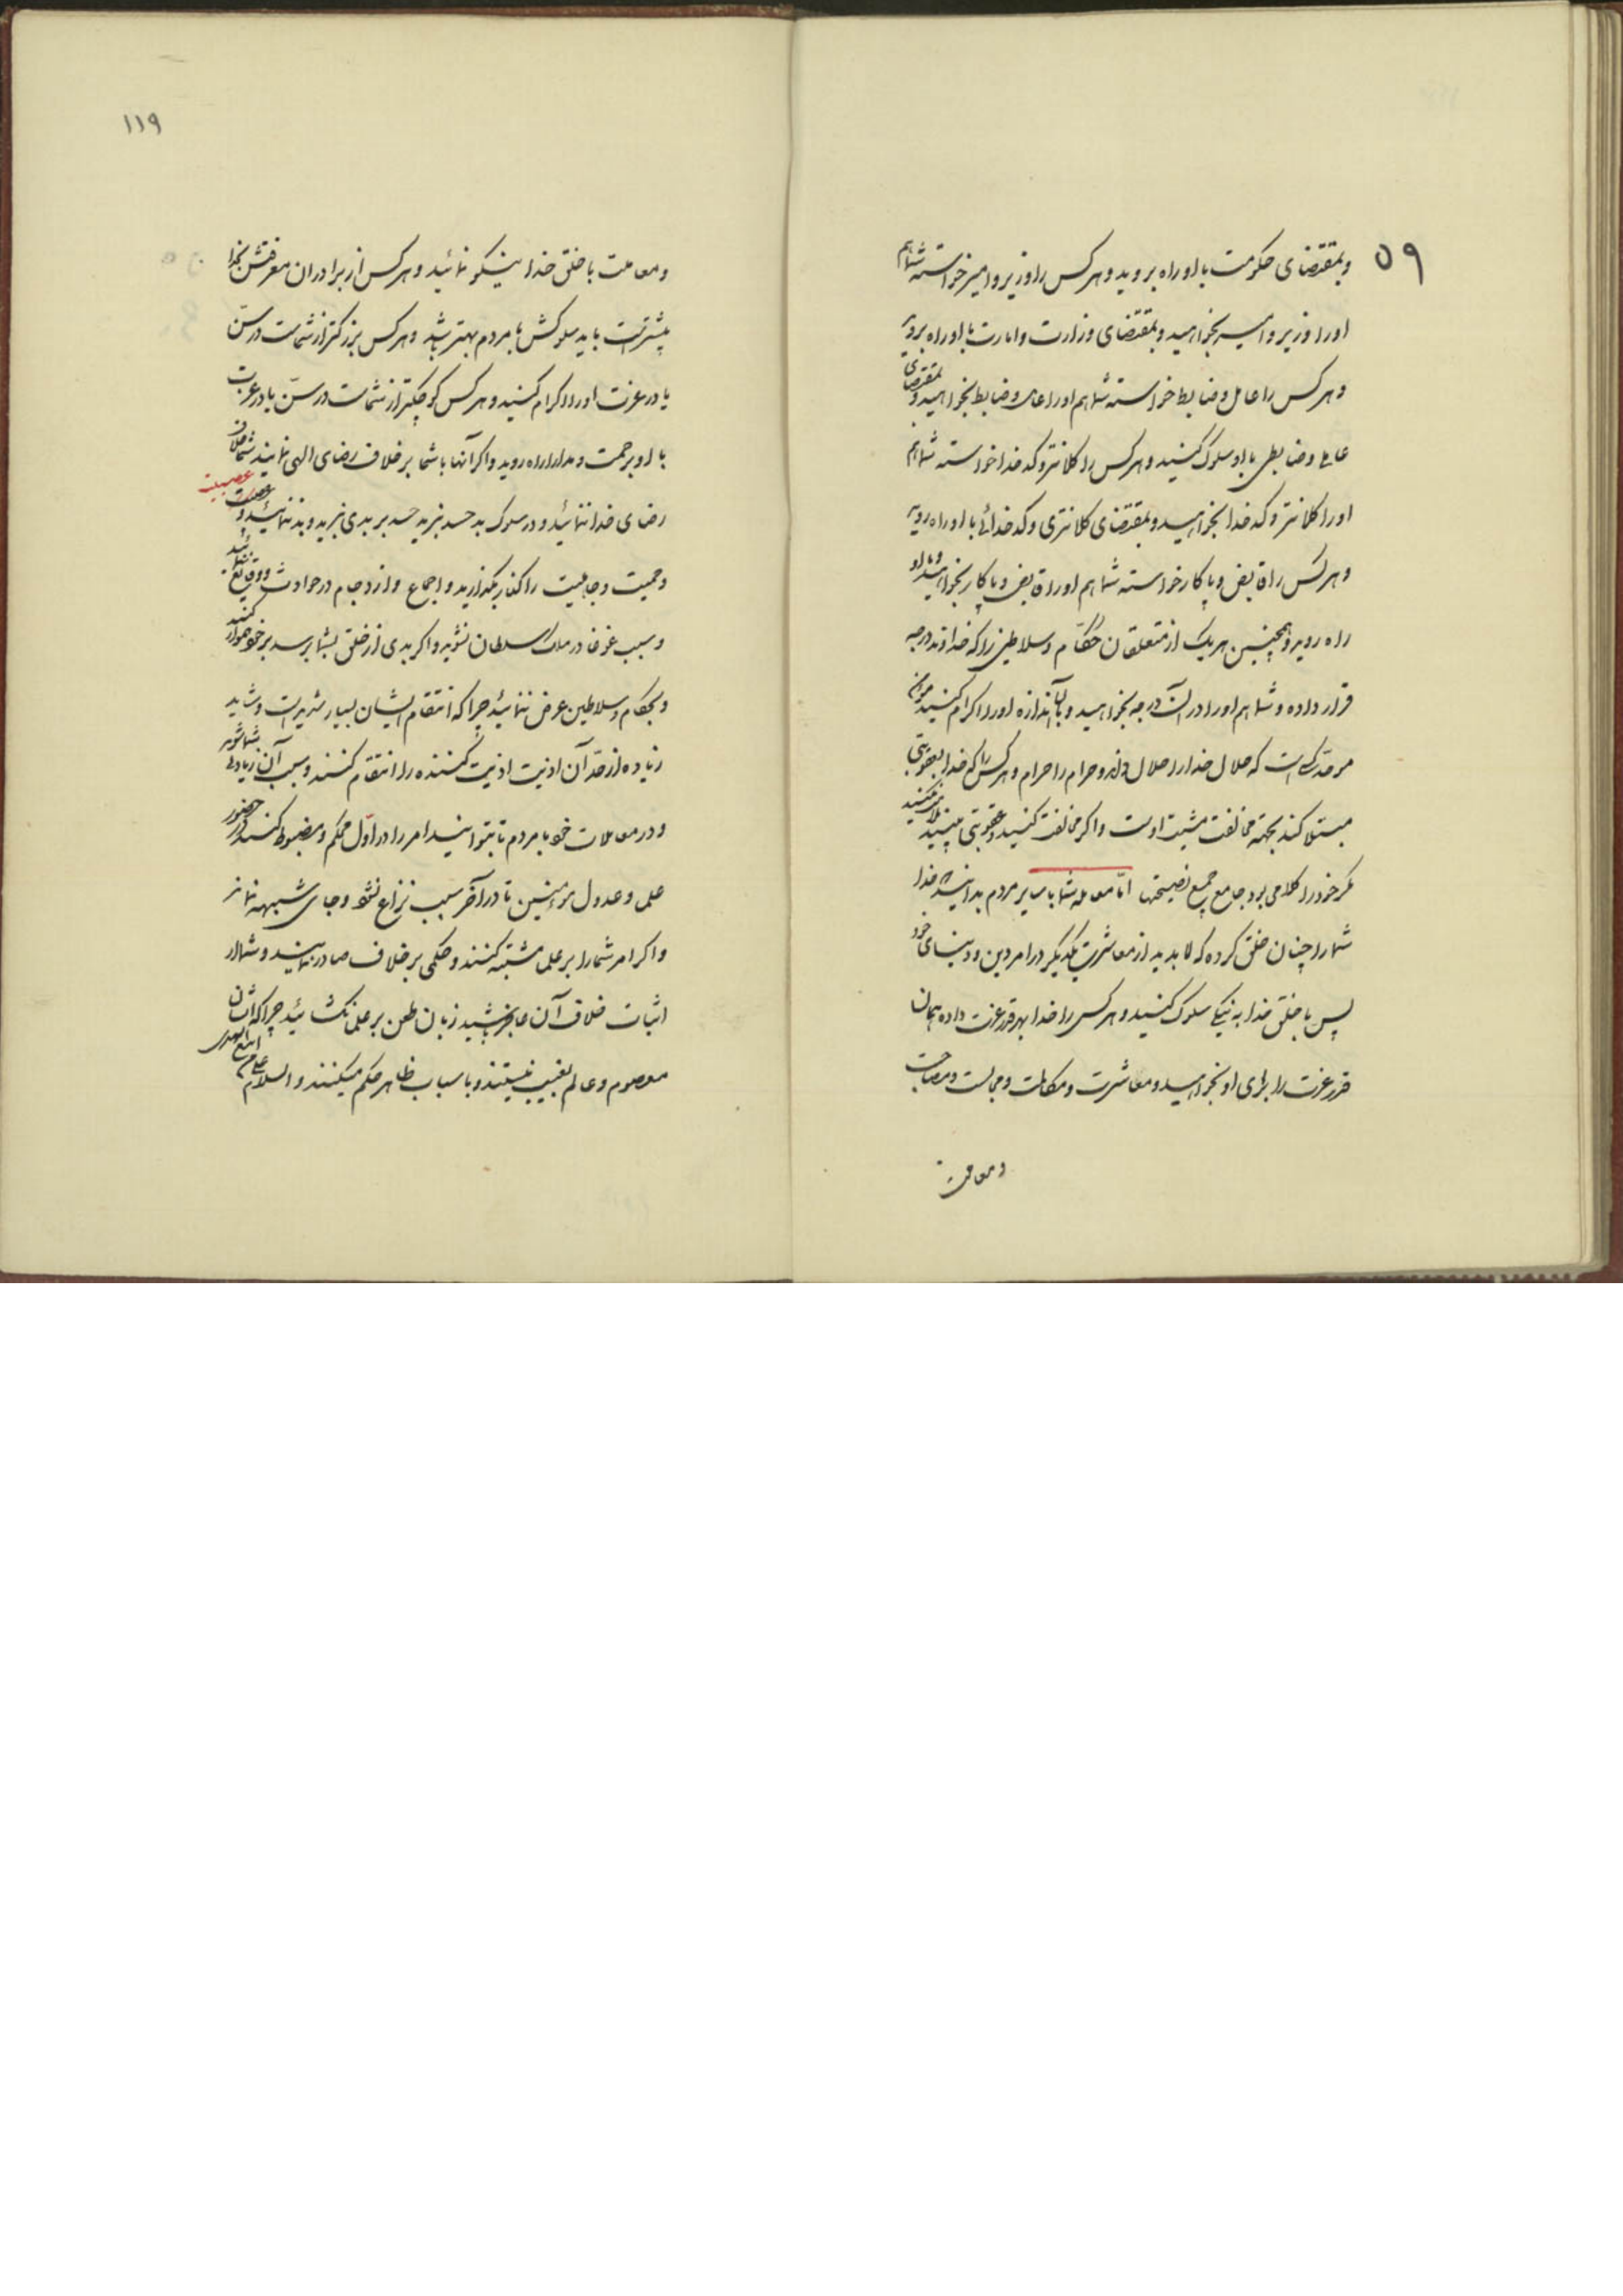 ۵۹
وبمقتضای حکومت با او راه بروید وهرکس را وزیر وامیر خواسته شما هم
او را وزیر وامیر بخواهید وبمقتضای وزارت وامارت با او راه بروید
وهرکس را عامل وضابط خواسته شما هم او را عامل وضابط بخواهید وبمقتضای
عاملی وضابطی با او سلوک کنید وهرکس را کلانتر وکدخدا خواسته شما هم
او را کلانتر وکدخدا بخواهید وبمقتضای کلانتری وکدخدائی با او راه روید
وهرکس را قابض وپاکار خواسته شما هم او را قابض وپاکار بخواهید وبا او
راه روید وهمچنین هر یک از متعلقان حکّام وسلاطین را که خداوند درجه
قرار داده وشما هم او را در آن درجه بخواهید وبآن اندازه او را اکرام کنید مؤمن
موحّد کسی است که حلال خدا را حلال داند وحرام را حرام وهرکس را که خدا بعقوبتی
مبتلا کند بجهة مخالفت مشیت اوست واگر مخالفت کنید وعقوبتی ببینید ملامت نکنید
مگر خود را کلامی بود جامع جمیع نصیحتها امّا معامله شما با سایر مردم بدانید خدا
شما را چنان خلق کرده که لابدید از معاشرت یکدیگر در امر دین ودنیای خود
پس با خلق خدا به نیکی سلوک کنید وهرکس را خدا بهر قدر عزت داده همان
قدر عزت را برای او بخواهید ومعاشرت ومکالمت ومجالست ومصاحبت
ومعاملت
۱۱۹
ومعاملت با خلق خدا نیکو نمائید وهرکس از برادران معرفتش بخدا
بیشتر است باید سلوکش با مردم بهتر باشد وهرکس بزرگتر از شماست در سنّ
یا در عزت او را اکرام کنید وهرکس کوچکتر از شماست در سنّ یا در عزت
با او برحمت ومدارا راه روید واگر آنها با شما بر خلاف رضای الهی نمایند شما خلاف
رضای خدا ننمائید ودر سلوک بد حسد نبرید حسد بر بدی نبرید وبد ننمائید وعصبیت
عصبیت
وحمیت وجاهلیت را کنار بگذارید واجماع وازدحام در حوادث ووقایع ننمائید
وسبب غوغا در ملک سلطان نشوید واگر بدی از خلق بشما برسد بر خود هموار کنید
وبحکام وسلاطین عرض ننمائید چرا که انتقام ایشان بسیار شدید است وشاید
زیاده از حدّ آن اذیت اذیت کننده را انتقام کنند وسبب آن زیادتی شما شوید
ودر معاملات خود با مردم تا بتوانید امر را در اوّل محکم ومضبوط کنید در حضور
علما وعدول مؤمنین تا در آخر سبب نزاع نشود وجای شبهه نماند
واگر امر شما را بر علما مشتبه کنند وحکمی بر خلاف صادر نمایند وشما از
اثبات خلاف آن عاجز باشید زبان طعن بر علما نگشائید چرا که ایشان
معصوم وعالم بغیب نیستند وباسباب ظاهر حکم میکنند والسلام علی من اتبع الهدی